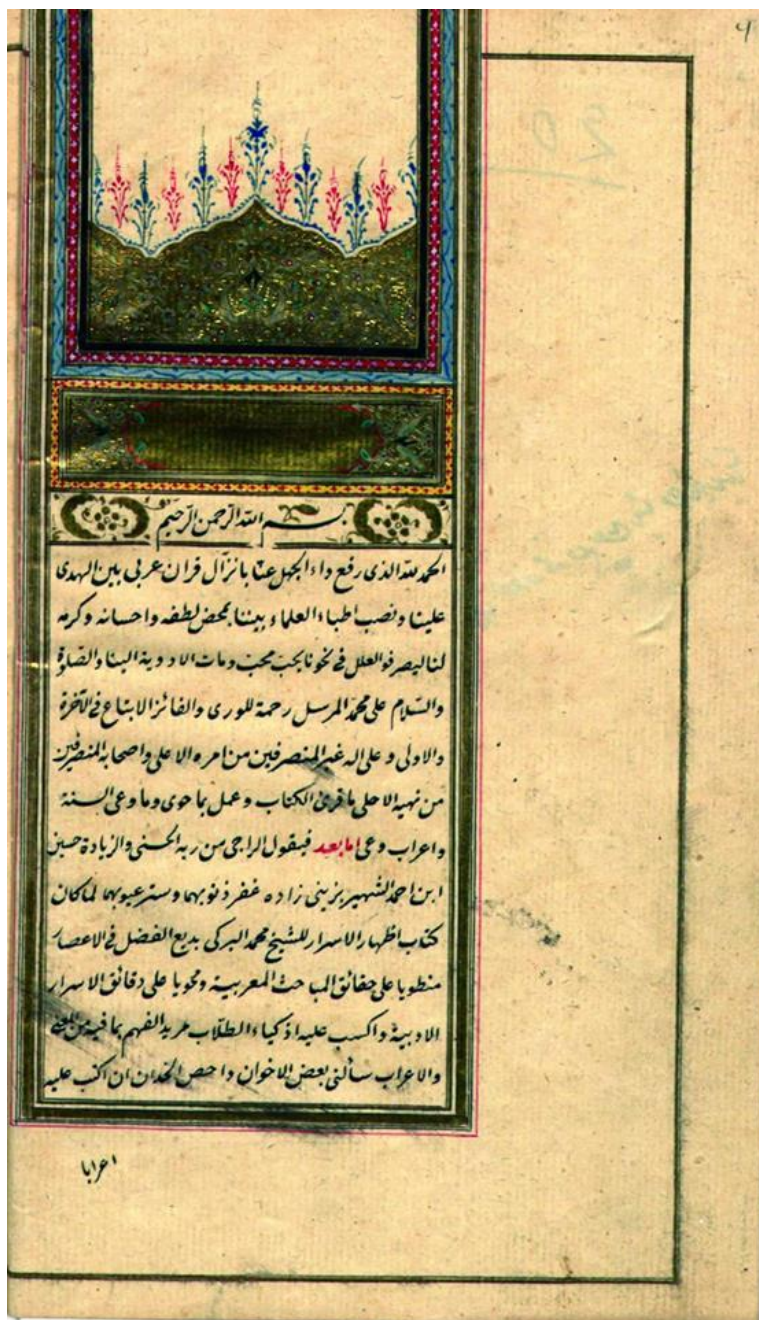 ٢
بسم الله الرحمن الرحيم
الحمد لله الذى رفع داء الجهل عنا بانزال قران عربى بين الهدى
علينا ونصب اطباء العلماء بيننا بمحض لطفه واحسانه وكرمه
لنا ليصرفو العلل فى نحونا بحب محب ومات الادوية البنا والصلوة
والسلام على محمد المرسل رحمة للورى والفائز الابتاع فى الآخرة
والاولى وعلى اله غير المنصرفين من امره الاعلى واصحابه المنصرفين
من نهيه الاحلى ما قرئ الكتاب وعمل بما حوى وما وعى السنة
واعراب وعى اما بعد فيقول الراجى من ربه الحسنى والزيادة حسين
ابن احمد الشهير بزينى زاده غفر ذنوبهما وستر عيوبهما لما كان
كتاب اظهار الاسرار للشيخ محمد البركى بديع الفضل فى الاعصار
منطويا على حقائق المباحث المعربية ومحويا على دقائق الاسرار
الادبية واكسب عليه اذكياء الطلاب مريد الفهم بما فيه من المعنى
والاعراب سألنى بعض الاخوان واخص الخدان ان اكتب عليه
اعرابا